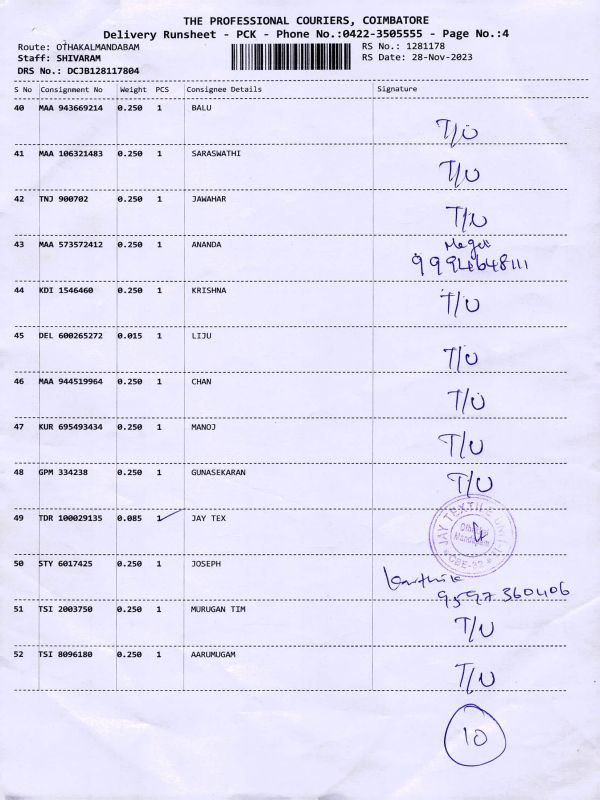 THE PROFESSIONAL COURIERS, COIMBATORE
Delivery Runsheet - PCK - Phone No.:0422-3505555 - Page No.:4
Route: OTHAKALMANDABAM RS No.: 1281178
Staff: SHIVARAM RS Date: 28-Nov-2023
DRS No.: DCJB128117804
S No Consignment No Weight PCS Consignee Details Signature
40 MAA 943669214 0.250 1 BALU T/U
41 MAA 106321483 0.250 1 SARASWATHI T/U
42 TNJ 900702 0.250 1 JAWAHAR T/U
43 MAA 573572412 0.250 1 ANANDA
44 KDI 1546460 0.250 1 KRISHNA T/U
45 DEL 600265272 0.015 1 LIJU T/U
46 MAA 944519964 0.250 1 CHAN T/U
47 KUR 695493434 0.250 1 MANOJ T/U
48 GPM 334238 0.250 1 GUNASEKARAN T/U
49 TDR 100029135 0.085 1 JAY TEX JAY TEXTILE UNIT
50 STY 6017425 0.250 1 JOSEPH Karthik
9597360406
51 TSI 2003750 0.250 1 MURUGAN TIM T/U
52 TSI 8096180 0.250 1 AARUMUGAM T/U
10